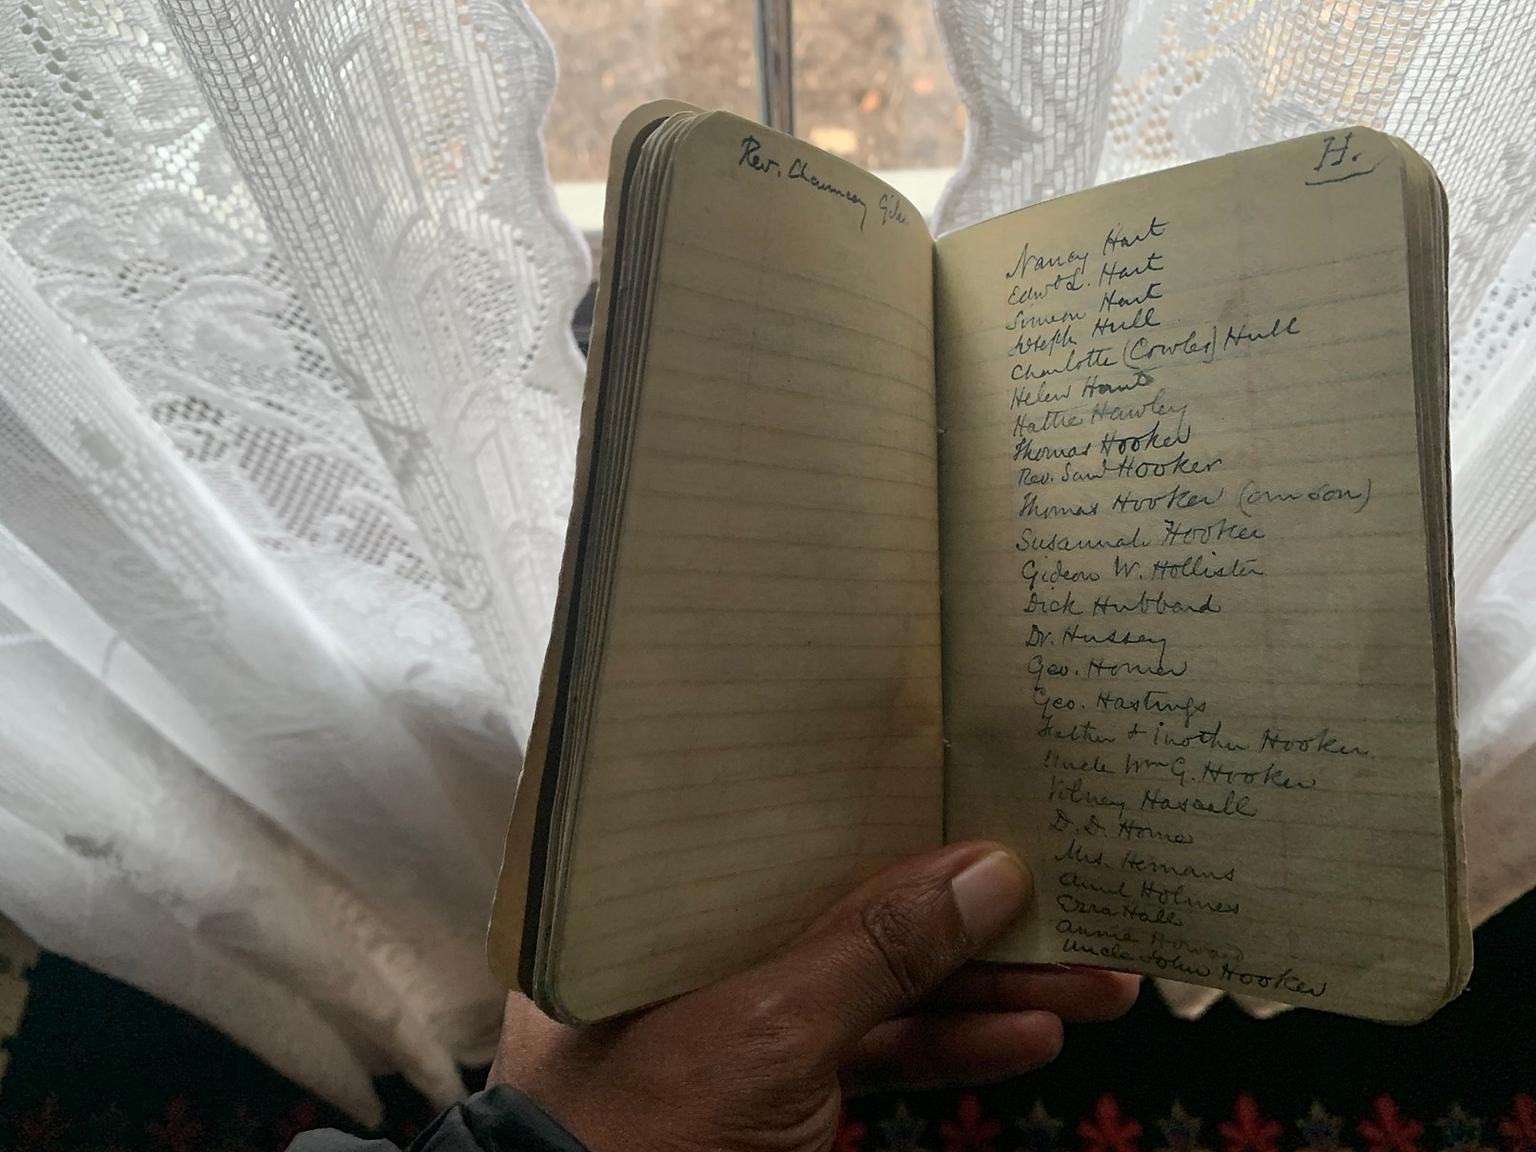 Rev. Chauncey Giles
H.
Nancy Hart
Edwd L. Hart
Simeon Hart
Joseph Hull
Charlotte (Cowles) Hull
Helen
Hattie Hawley
Thomas Hooker
Rev. Saml Hooker
Thomas Hooker (our son)
Susannah Hooker
Gideon W. Hollister
Dick Hubbard
Dr. Hussey
Geo. Homer
Geo. Hastings
Father & Mother Hooker
Uncle Wm G. Hooker
Volney Hascall
D. D. Home
Mrs. Hemans
Aunt Holmes
Ezra Hall
Annie Howard
Uncle John Hooker